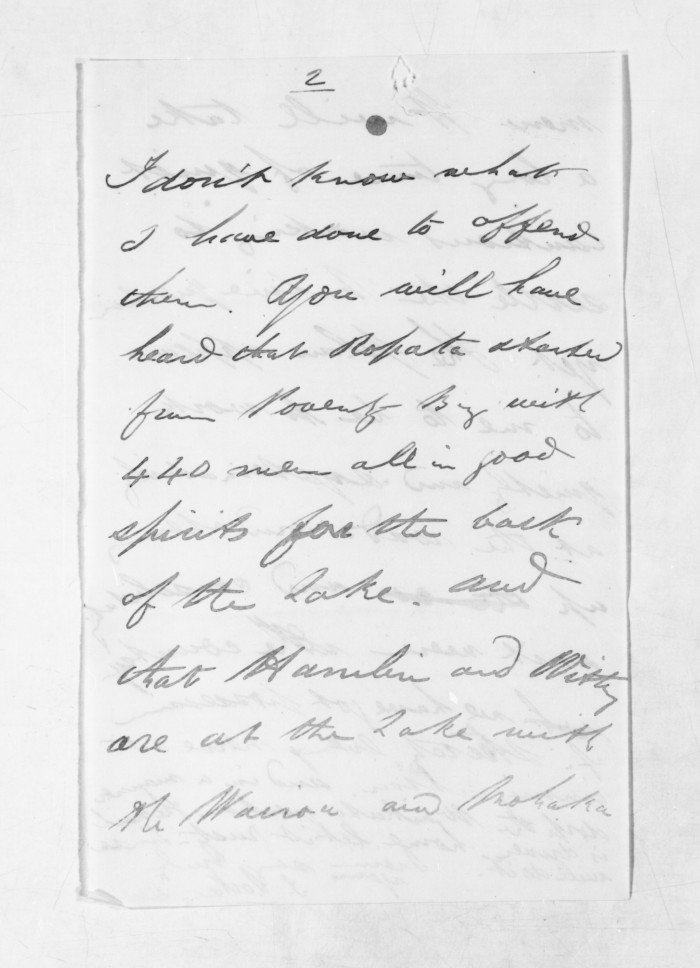 2
I don't know what
I have done to offend
them. You will have
heard that Ropata started
from Poverty Bay with
440 men all in good
spirits for the back
of the Lake. and
that Hamlin and Witty
are at the Lake with
the Wairoa and Mohaka